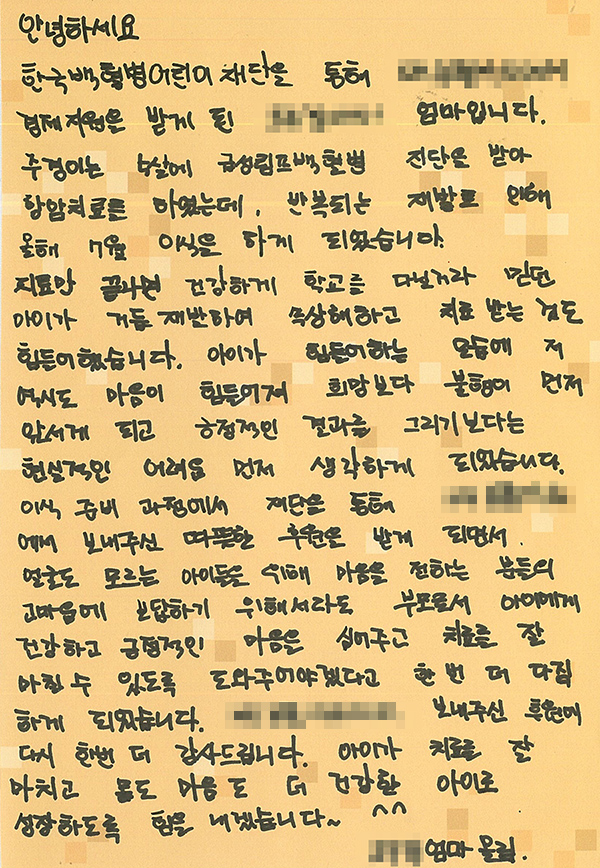 안녕하세요
한국백혈병어린이재단을 통해
경제지원을 받게 된 엄마입니다.
주경이는 5살에 급성림프백혈병 진단을 받아
항암치료를 하였는데, 반복되는 재발로 인해
올해 7월 이식을 하게 되었습니다.
치료만 끝나면 건강하게 학교를 다닐거라 믿던
아이가 거듭 재발하여 속상해하고 치료 받는 것도
힘들어했습니다. 아이가 힘들어하는 모습에 저
역시도 마음이 힘들어져 희망보다 불행이 먼저
앞서게 되고 긍정적인 결과를 그리기보다는
현실적인 어려움 먼저 생각하게 되었습니다.
이식 준비 과정에서 재단을 통해
에서 보내주신 따뜻한 후원을 받게 되면서.
얼굴도 모르는 아이들을 위해 마음을 전하는 분들의
고마움에 보답하기 위해서라도 부모로서 아이에게
건강하고 긍정적인 마음을 심어주고 치료를 잘
마칠 수 있도록 도와주어야겠다고 한 번 더 다짐
하게 되었습니다. 보내주신 후원에
다시 한번 더 감사드립니다. 아이가 치료를 잘
마치고 몸도 마음도 더 건강한 아이로
성장하도록 힘을 내겠습니다~ ^^
엄마 올림.